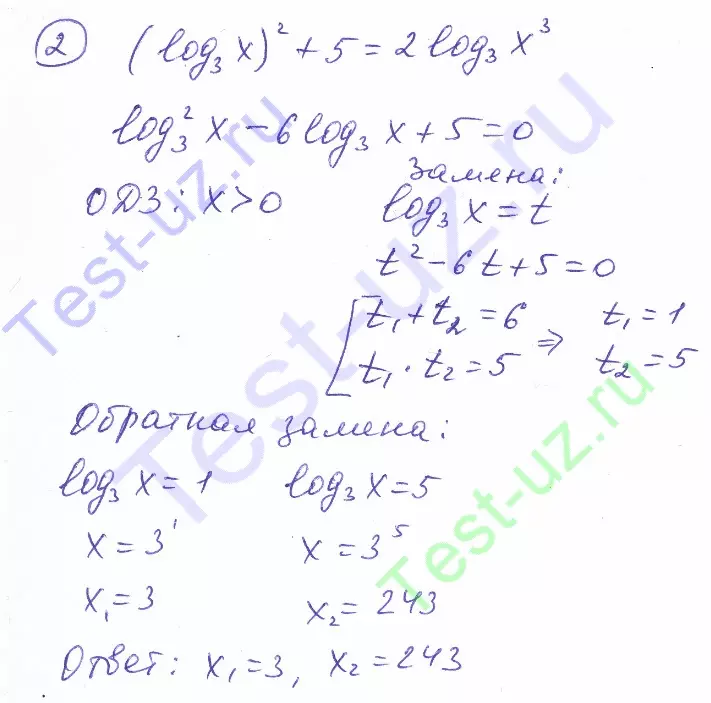 2 (log₃ x)² + 5 = 2 log₃ x³
log₃² x − 6 log₃ x + 5 = 0
ОДЗ: x > 0
Замена:
log₃ x = t
t² − 6t + 5 = 0
[ t₁ + t₂ = 6 ⇒ t₁ = 1
t₁ · t₂ = 5 t₂ = 5
Обратная замена:
log₃ x = 1 log₃ x = 5
x = 3¹ x = 3⁵
x₁ = 3 x₂ = 243
Ответ: x₁ = 3, x₂ = 243
Test-uz.ru
Test-uz.ru
Test-uz.ru